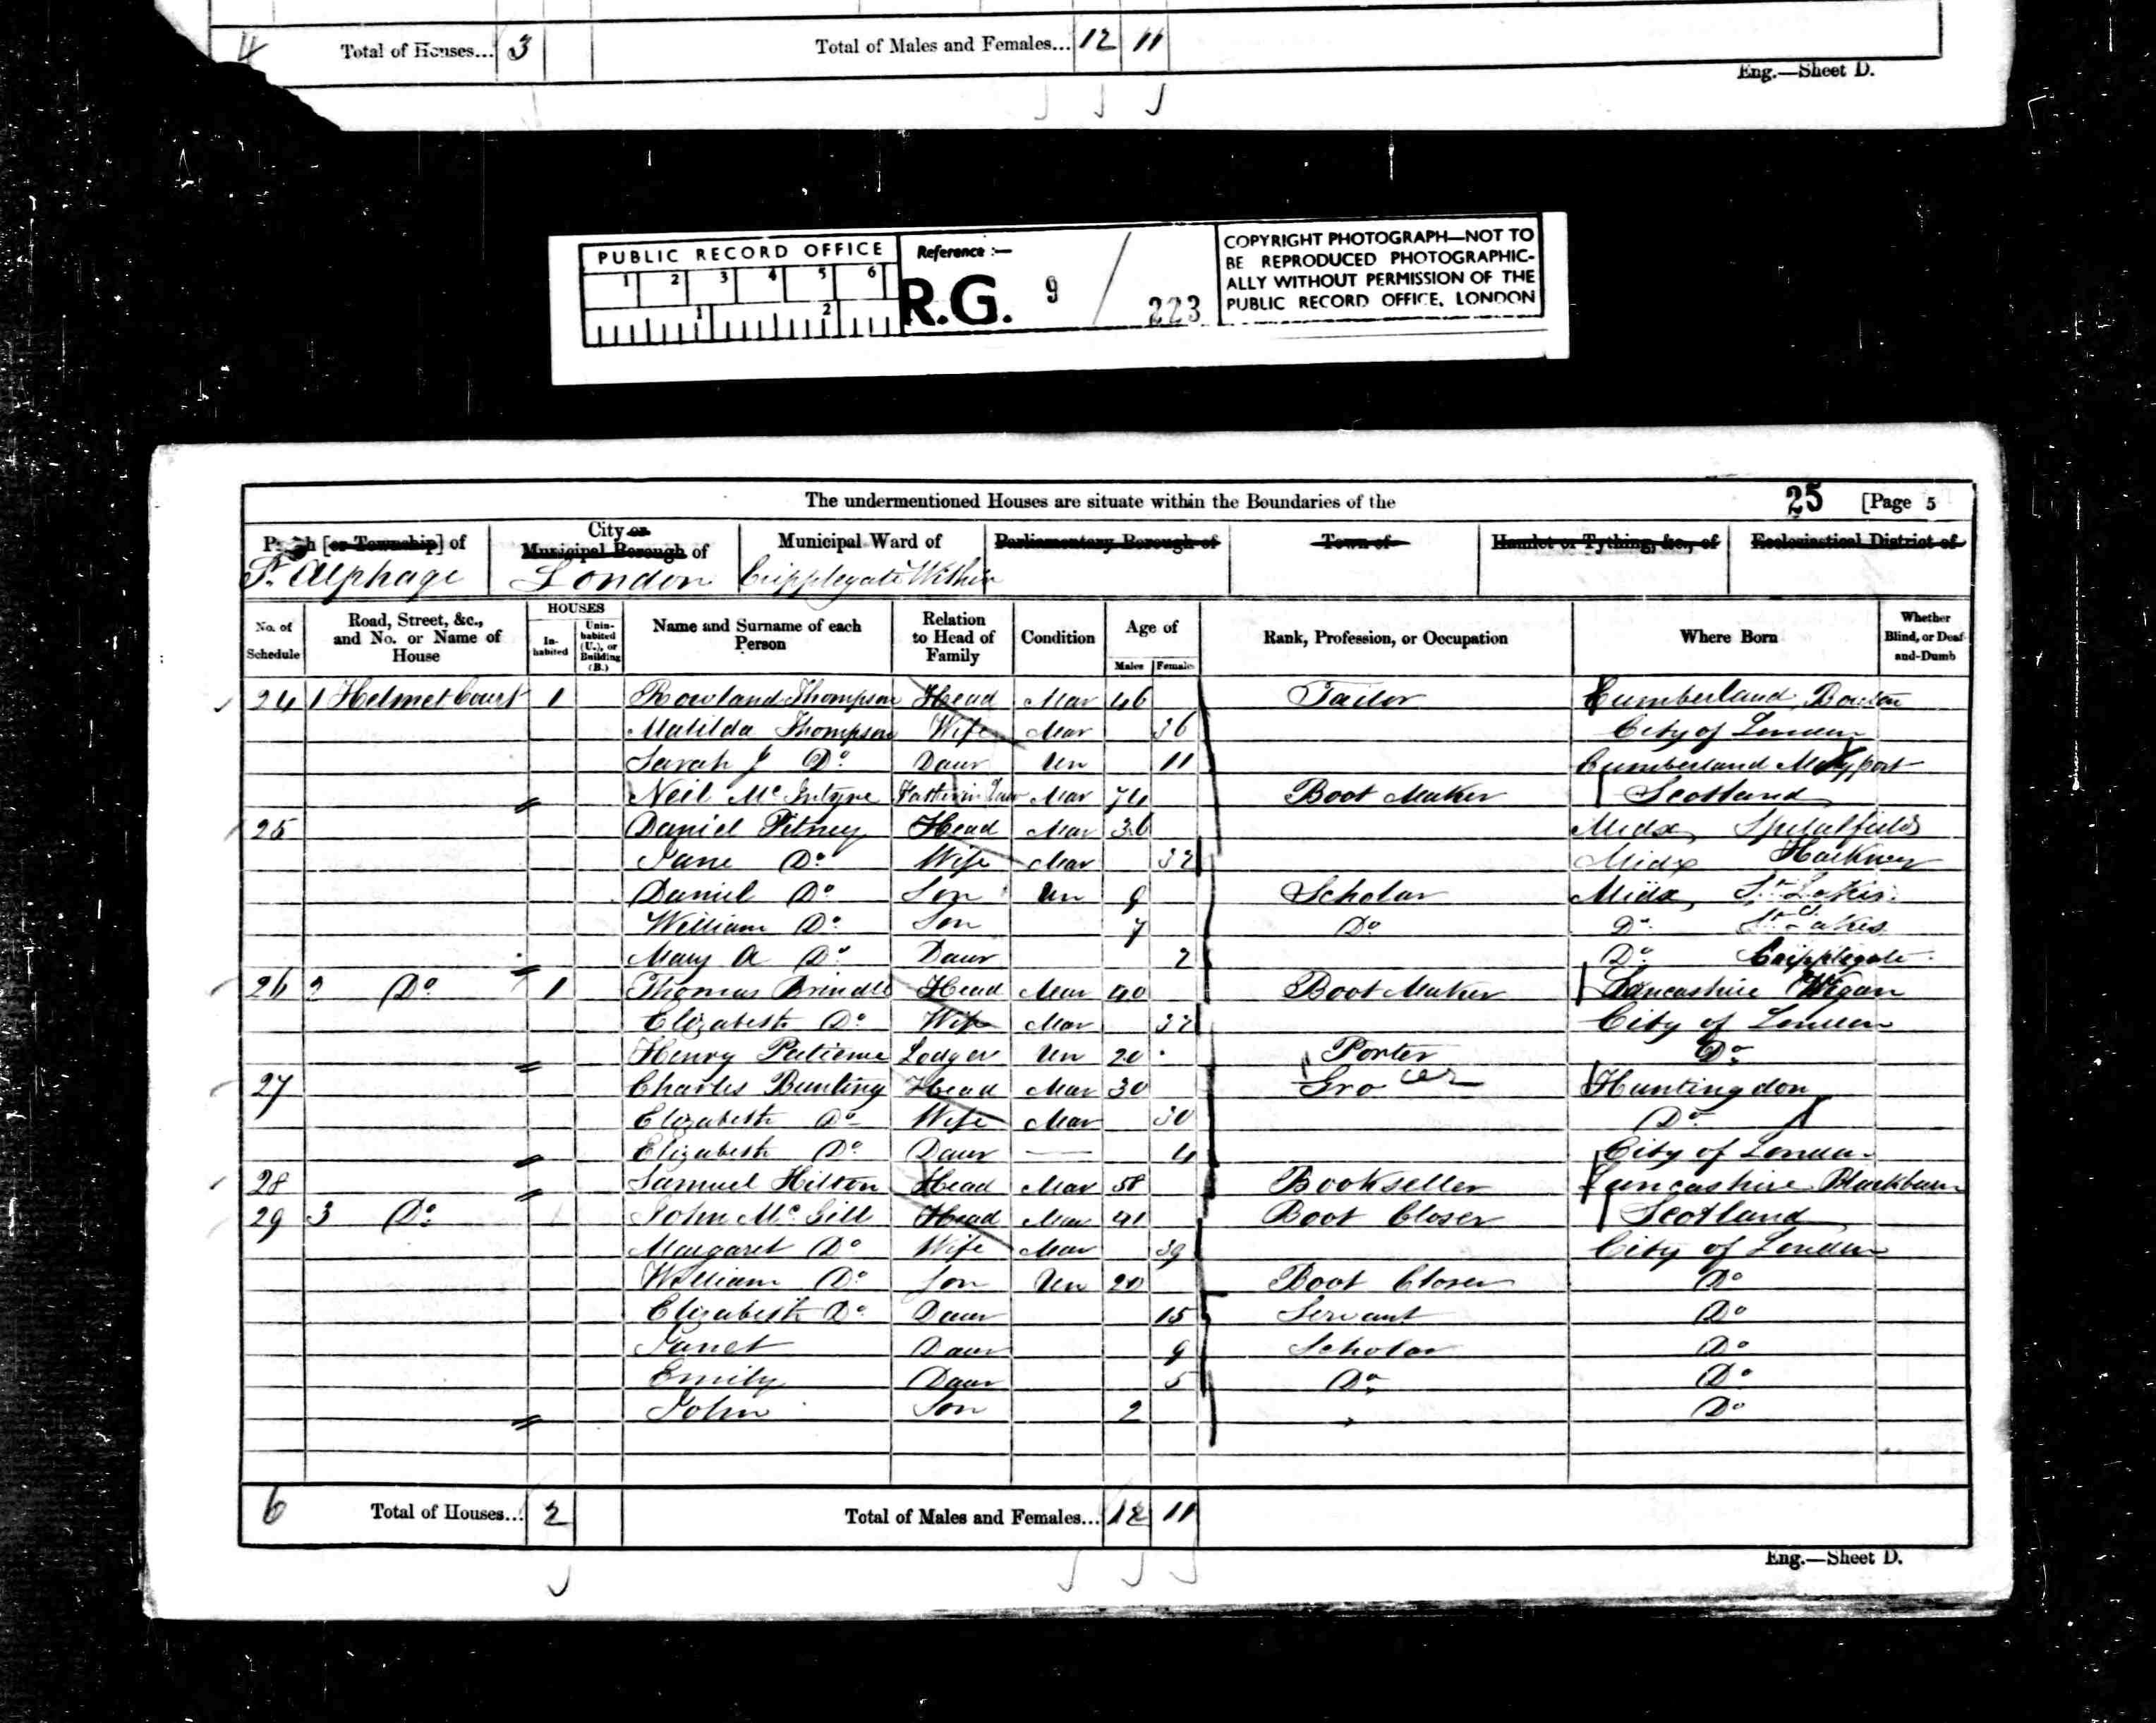 4 Total of Houses... 3 Total of Males and Females... 12 11
Eng.—Sheet D.
PUBLIC RECORD OFFICE
1 2 3 4 5 6
1 2
Reference :—
R.G. 9 / 223
COPYRIGHT PHOTOGRAPH—NOT TO
BE REPRODUCED PHOTOGRAPHIC-
ALLY WITHOUT PERMISSION OF THE
PUBLIC RECORD OFFICE, LONDON
The undermentioned Houses are situate within the Boundaries of the 25 [Page 5
Parish [or Township] of City or Municipal Borough of Municipal Ward of Parliamentary Borough of Town of Hamlet or Tything, &c., of Ecclesiastical District of
St. Alphage London Cripplegate Within
No. of Schedule Road, Street, &c., and No. or Name of House HOUSES Inhabited Uninhabited (U.), or Building (B.) Name and Surname of each Person Relation to Head of Family Condition Age of Males Females Rank, Profession, or Occupation Where Born Whether Blind, or Deaf-and-Dumb
24 1 Helmet Court 1 Rowland Thompson Head Mar 46 Tailor Cumberland
Matilda Thompson Wife Mar 36 City of London
Sarah J Do Daur Un 11 Cumberland Maryport
Neil McIntyre Father in Law Mar 74 Boot Maker Scotland
25 Daniel Pitney Head Mar 36 Midx Spitalfields
Jane Do Wife Mar 32 Midx Hackney
Daniel Do Son Un 9 Scholar Midx St Lukes
William Do Son 7 Do Do St Lukes
Mary A Do Daur 2 Do Cripplegate
26 2 Do 1 Thomas Brindle Head Mar 40 Boot Maker Lancashire Wigan
Elizabeth Do Wife Mar 32 City of London
Henry Patience Lodger Un 20 Porter Do
27 Charles Bunting Head Mar 30 Grocer Huntingdon
Elizabeth Do Wife Mar 30 Do
Elizabeth Do Daur — 4 City of London
28 Samuel Hilton Head Mar 58 Bookseller Lancashire Blackburn
29 3 Do John McGill Head Mar 41 Boot Closer Scotland
Margaret Do Wife Mar 39 City of London
William Do Son Un 20 Boot Closer Do
Elizabeth Do Daur 15 Servant Do
Janet Daur 9 Scholar Do
Emily Daur 5 Do Do
John Son 2 Do
6 Total of Houses... 2 Total of Males and Females... 12 11
Eng.—Sheet D.